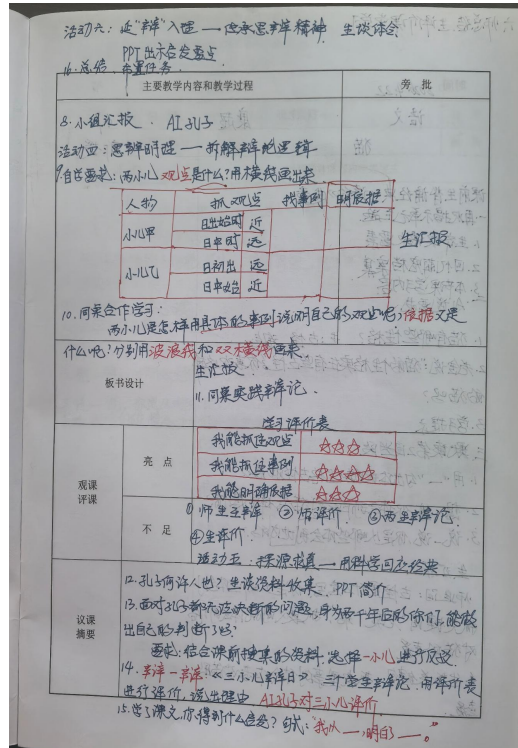 活动六：延"辩"入理——传承思辩精神 生谈体会
PPT出示启发要点
16.总结，布置任务。
主要教学内容和教学过程 旁 批
8.小组汇报、AI孔子
活动四：思辩明理——拆解辩论逻辑
9.自学要求：两小儿观点是什么？用横线画出来
人物 抓观点 找事例 明依据
小儿甲 日出始时 近
日中时 远
生汇报
小儿乙 日初出 远
日中始 近
10.同桌合作学习：
两小儿是怎样用具体的事例说明自己的观点呢？依据又是
什么呢？分别用波浪线和双横线画来。
生汇报。
板书设计
11.同桌实践辩论。
学习评价表
我能抓住观点 ☆☆☆
我能抓住事例 ☆☆☆☆
我能明确依据 ☆☆☆
观课
评课
亮 点
不 足
①师生互辩 ②师评价 ③两生辩论
④生评价
活动五：探源求真——用科学回应经典
议课
摘要
12.孔子何许人也？生谈资料收集 PPT简介
13.面对孔子都无法决断的问题，身为两千年后的你们，能做
出自己的判断了吗？
要求：结合课前搜集的资料，选择一小儿进行反驳
14.辩一辩《三小儿辩日》 三个学生辩论，用评价表
进行评价，说出理由 AI孔子对三小儿评价
15.学了课文，你得到什么启发？句式："我从——，明白——。"